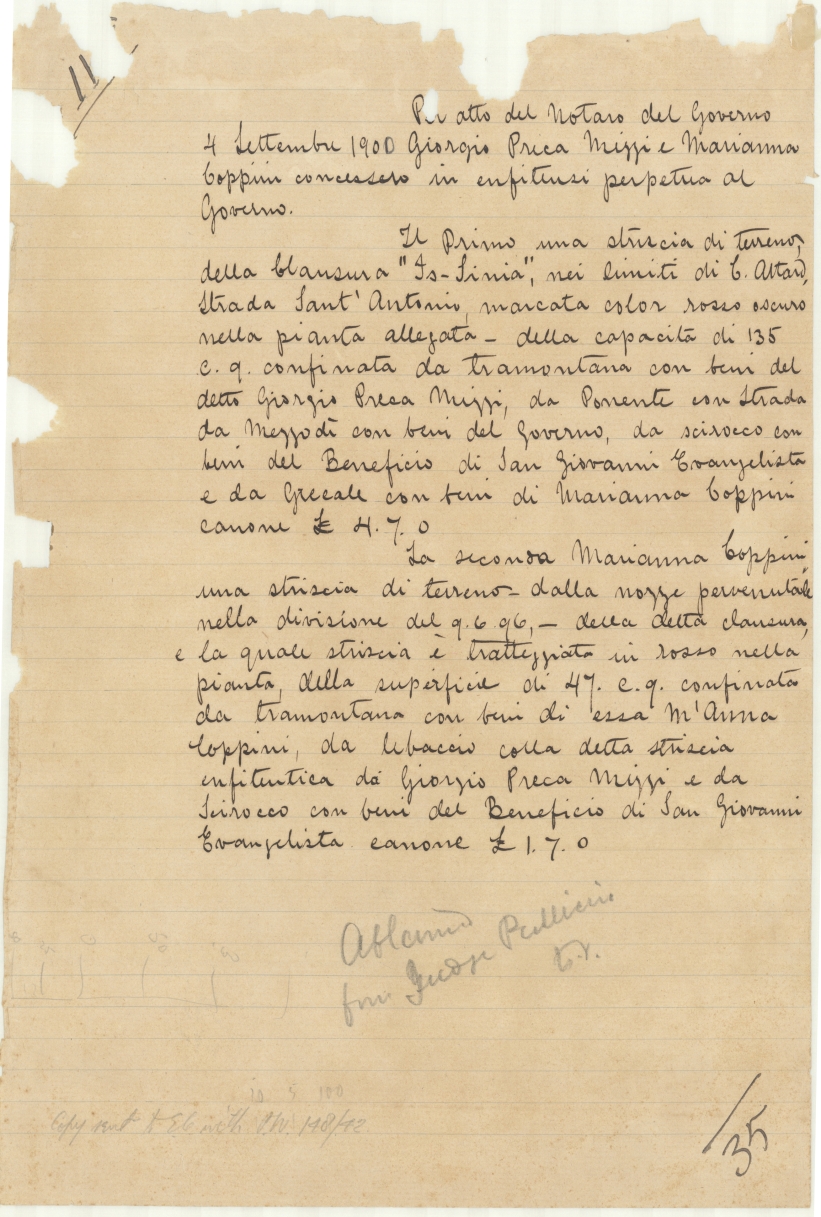 11
Per atto del Notaro del Governo
4 Settembre 1900 Giorgio Preca Mizzi e Marianna
Coppini concessero in enfiteusi perpetua al
Governo.
Il Primo una striscia di terreno,
della Clausura "Is-Sinia", nei limiti di C. Attard,
Strada Sant' Antonio, marcata color rosso oscuro
nella pianta allegata - della capacità di 135
c. q. confinata da tramontana con beni del
detto Giorgio Preca Mizzi, da Ponente con Strada
da Mezzodì con beni del Governo, da scirocco con
beni del Beneficio di San Giovanni Evangelista
e da Grecale con beni di Marianna Coppini
canone £ 4. 7. 0
La seconda Marianna Coppini
una striscia di terreno - dalla nozze pervenutale
nella divisione del 9. 6. 96, - della detta clausura,
e la quale striscia è tratteggiata in rosso nella
pianta, della superficie di 47. c. q. confinata
da tramontana con beni di essa M'Anna
Coppini, da libaccio colla detta striscia
enfiteutica da Giorgio Preca Mizzi e da
Scirocco con beni del Beneficio di San Giovanni
Evangelista canone £ 1. 7. 0
from Judge Pullicino
10 5 100
Copy sent to 148/42
35